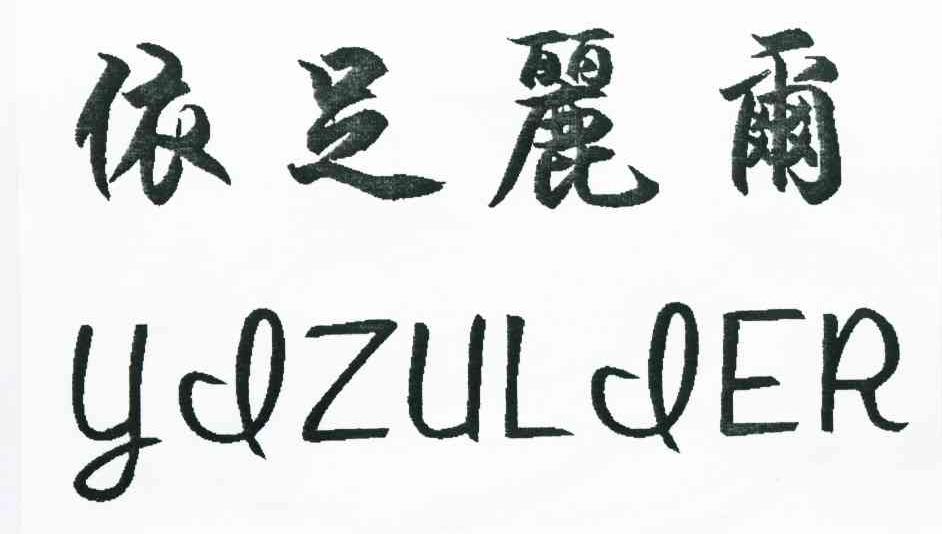 依足麗爾
YIZULIER